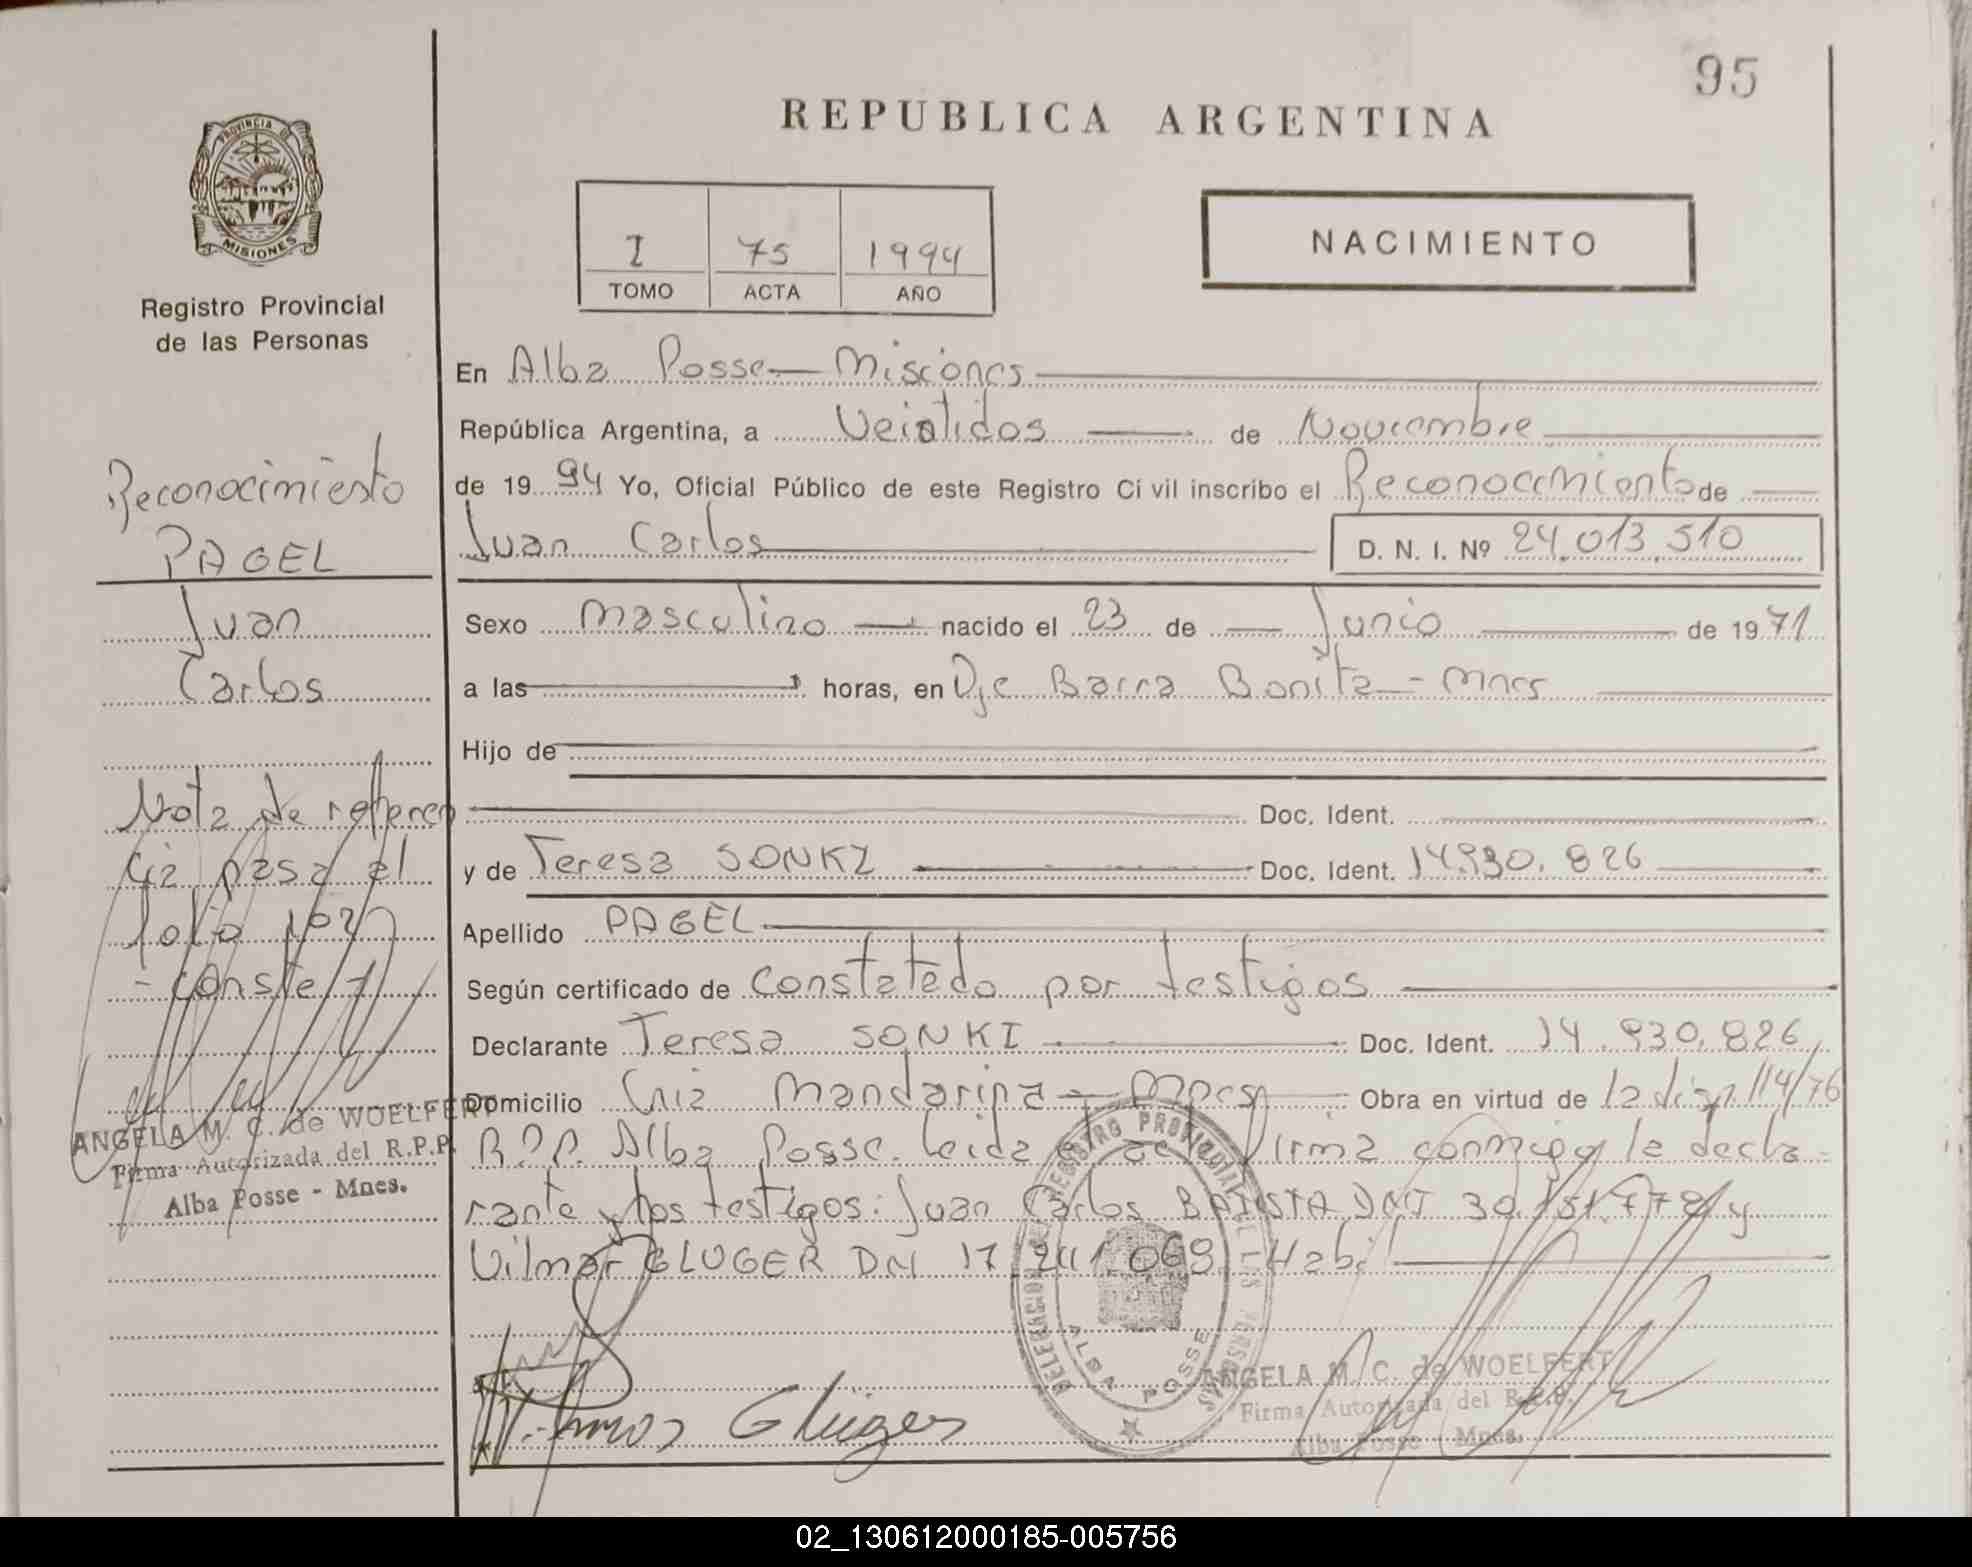 95
REPUBLICA ARGENTINA
PROVINCIA DE
MISIONES
Registro Provincial
de las Personas
I 75 1994
TOMO ACTA AÑO
NACIMIENTO
Reconocimiento
PAGEL
Juan
Carlos
Nota de referen
cia pasa al
folio 102
- conste -
ANGELA M. C. de WOELFERT
Firma Autorizada del R.P.P.
Alba Posse - Mnes.
En Alba Posse - Misiones
República Argentina, a Veintidos de Noviembre
de 1994 Yo, Oficial Público de este Registro Civil inscribo el Reconocimiento de
Juan Carlos D. N. I. Nº 24.013.510
Sexo masculino nacido el 23 de Junio de 1971
a las horas, en Dje Barra Bonita - Mnes
Hijo de
Doc. Ident.
y de Teresa SONKI Doc. Ident. 14.930.826
Apellido PAGEL
Según certificado de constatado por testigos
Declarante Teresa SONKI Doc. Ident. 14.930.826
Domicilio Cnia Mandarina - Mnes Obra en virtud de la disp 114/76
R.P.P. Alba Posse. Leida el acta firma conmigo la decla-
rante y los testigos: Juan Carlos BATISTA DNI 30.151.778 y
Vilmar GLUGER DNI 17.241.069 Habil
Glüger
DELEGACION DEL REGISTRO PROVINCIAL DE LAS PERSONAS
ALBA POSSE
ANGELA M. C. de WOELFERT
Firma Autorizada del R.P.P.
Alba Posse - Mnes.
02_130612000185-005756